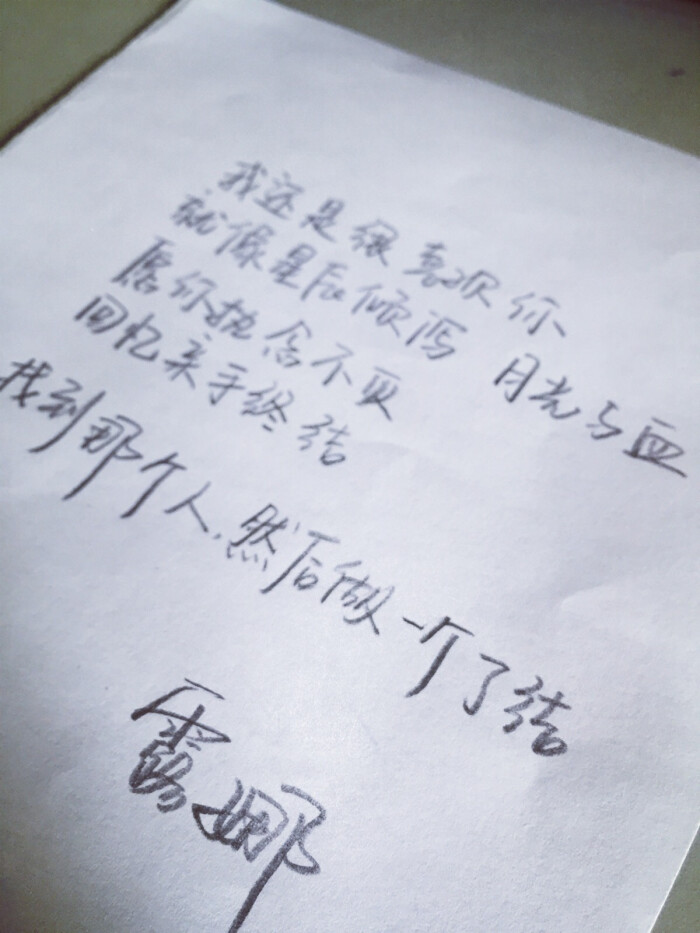 我还是很喜欢你
就像星辰倾泻 月光与血
愿你执念不灭
回忆亲手终结
找到那个人,然后做一个了结
露娜